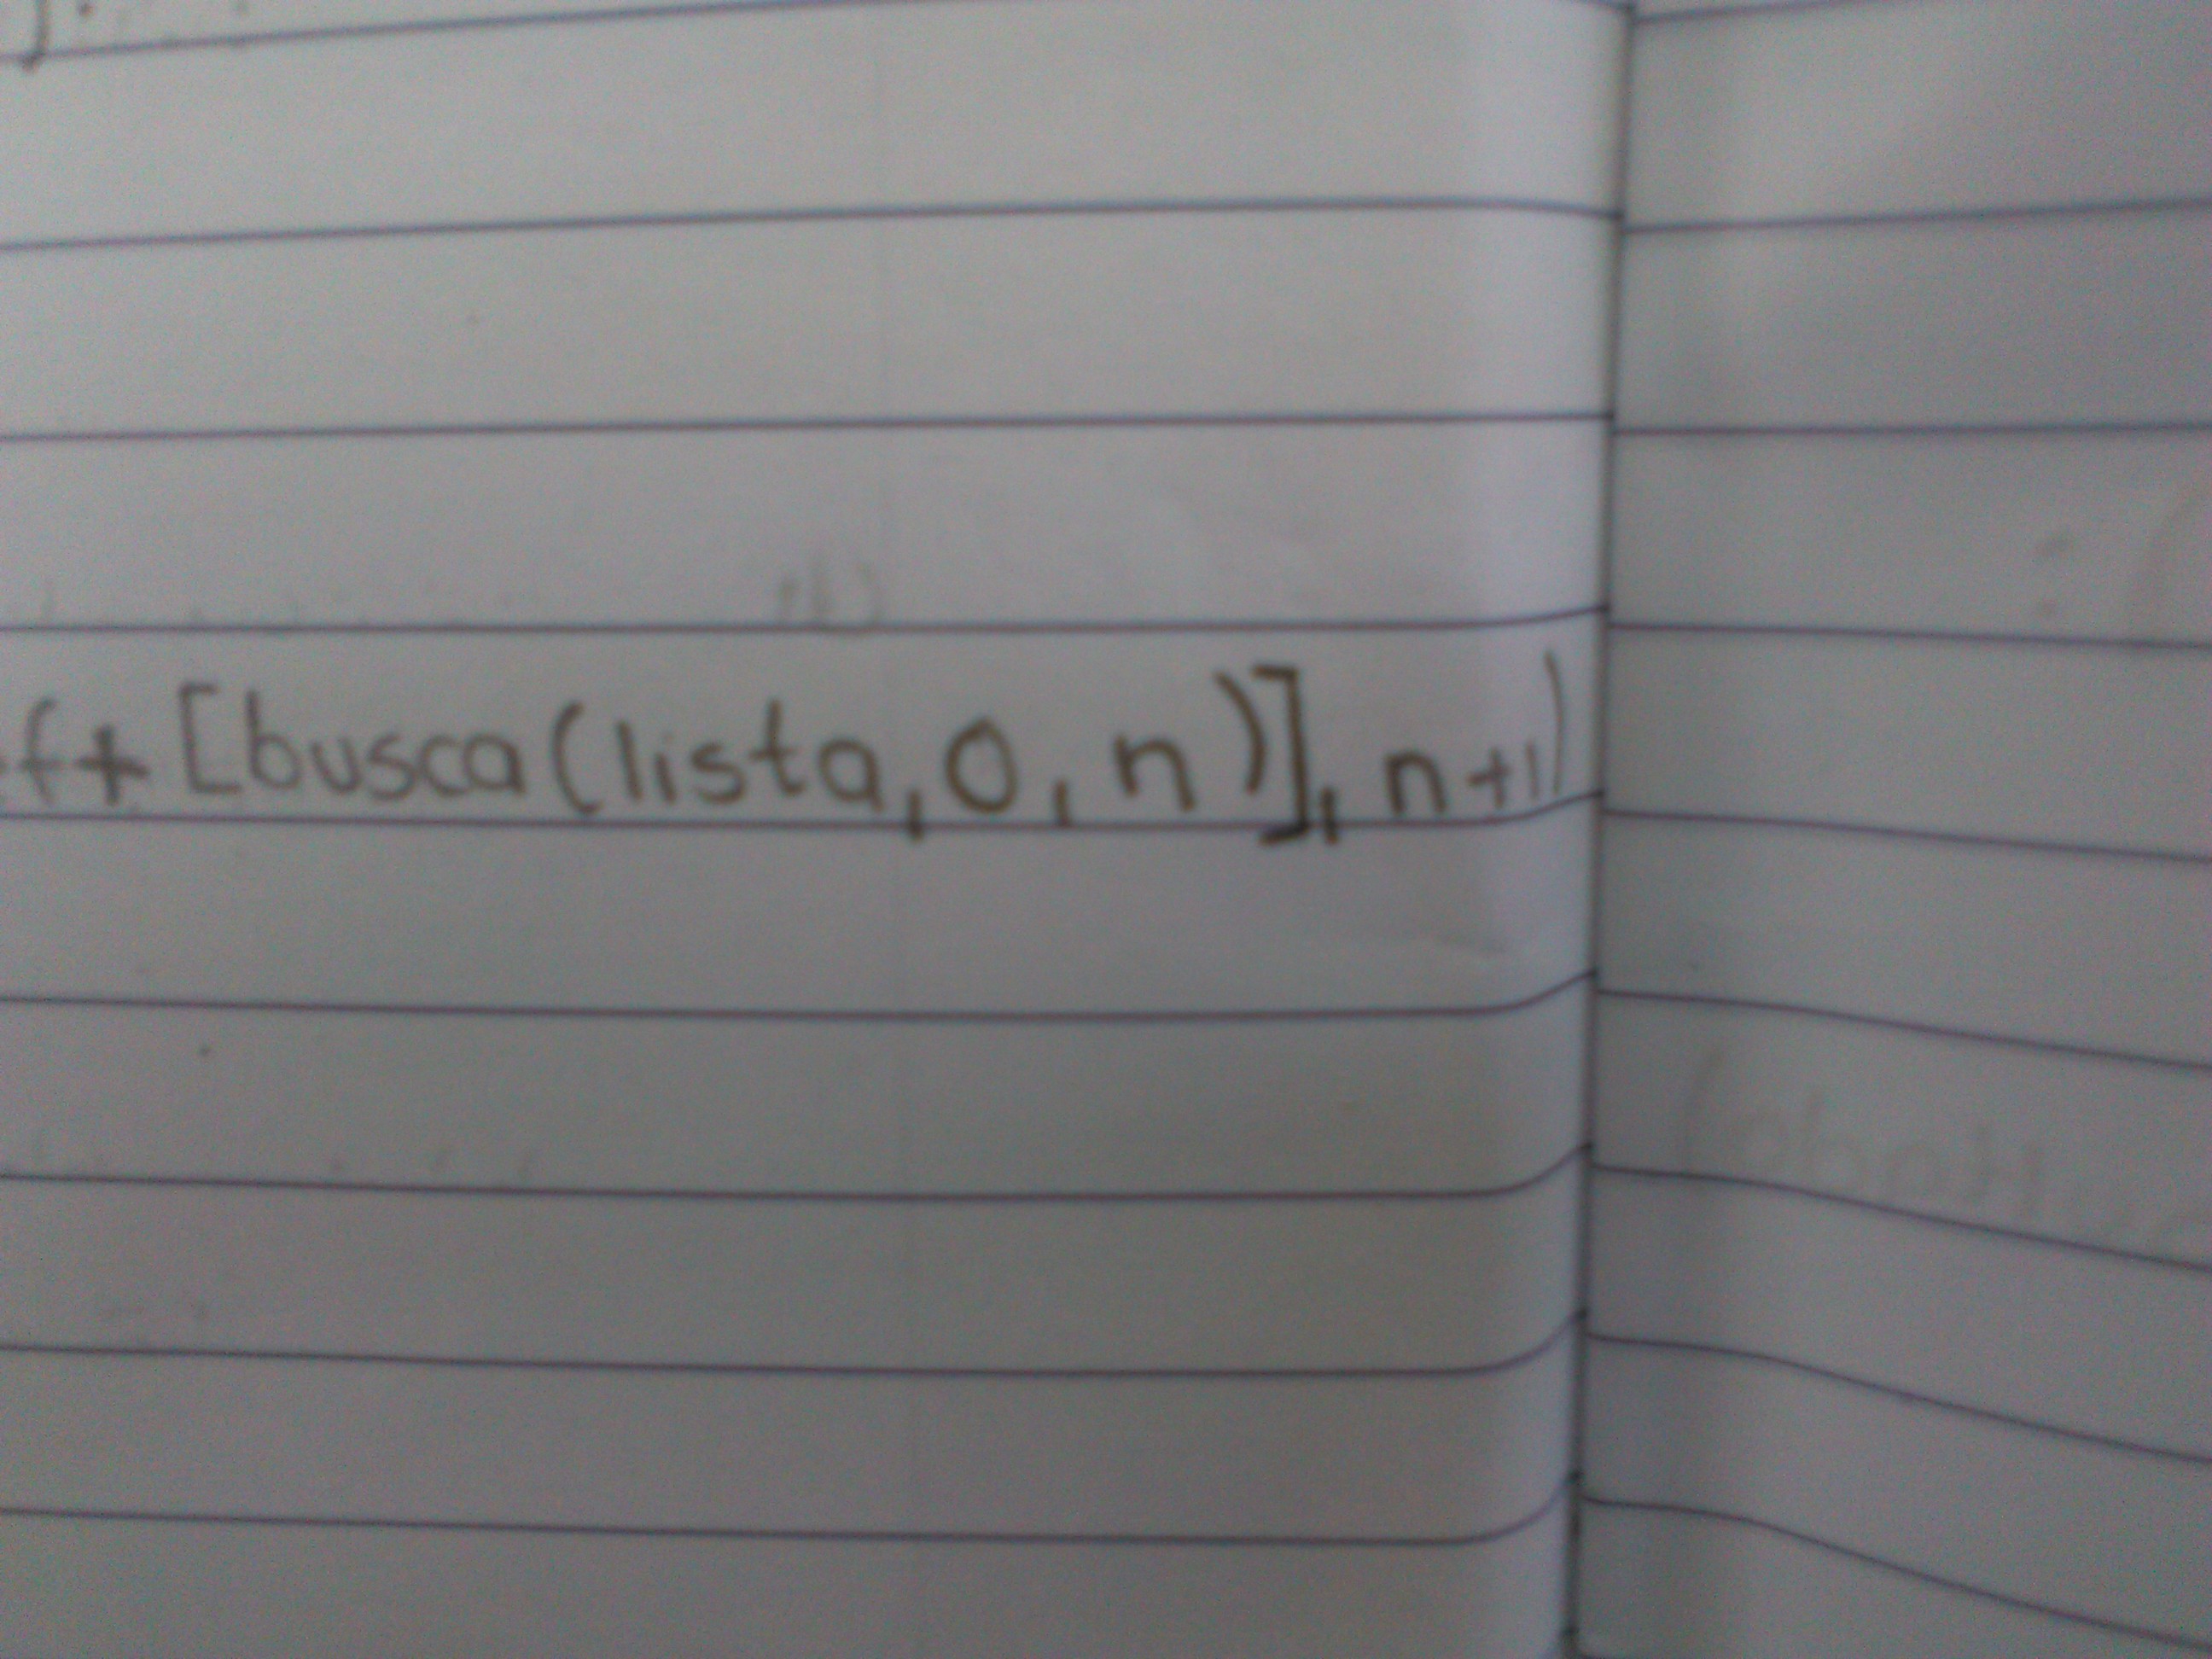 f+ [busca(lista,0,n)],n+1)